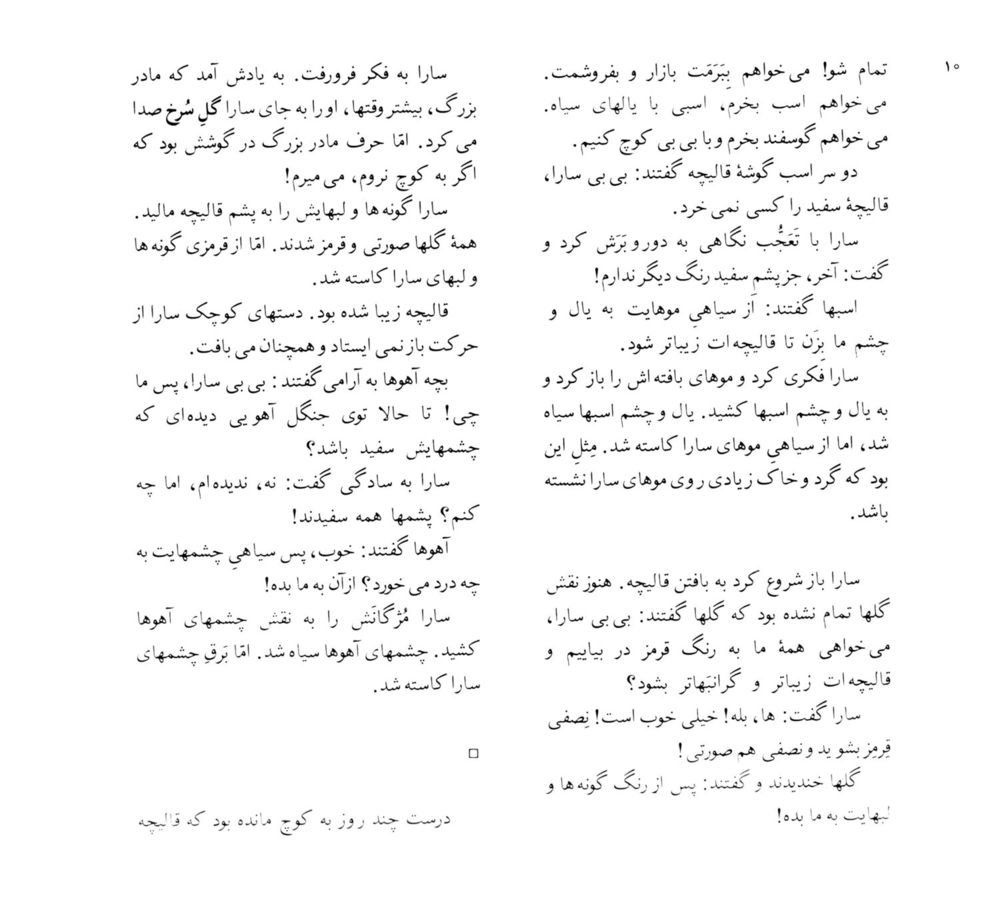 ۱۰
تمام شو! می‌خواهم بِبَرَمَت بازار و بفروشمت.
می‌خواهم اسب بخرم، اسبی با یالهای سیاه.
می‌خواهم گوسفند بخرم و با بی بی کوچ کنیم.
دو سر اسب گوشهٔ قالیچه گفتند: بی بی سارا،
قالیچهٔ سفید را کسی نمی خرد.
سارا با تَعَجُّب نگاهی به دور و بَرَش کرد و
گفت: آخر، جز پشمِ سفید رنگ دیگر ندارم!
اسبها گفتند: اَز سیاهیِ موهایت به یال و
چشم ما بِزَن تا قالیچه ات زیباتر شود.
سارا فَکری کرد و موهای بافته اش را باز کرد و
به یال و چشم اسبها کشید. یال و چشم اسبها سیاه
شد، اما از سیاهیِ موهای سارا کاسته شد. مِثلِ این
بود که گرد و خاک زیادی روی موهای سارا نشسته
باشد.
سارا باز شروع کرد به بافتن قالیچه. هنوز نقش
گلها تمام نشده بود که گلها گفتند: بی بی سارا،
می‌خواهی همهٔ ما به رنگ قرمز در بیاییم و
قالیچه ات زیباتر و گرانبَهاتر بشود؟
سارا گفت: ها، بله! خیلی خوب است! نِصفی
قِرمِز بشوید و نصفی هم صورتی!
گلها خندیدند و گفتند: پس از رنگ گونه ها و
لبهایت به ما بده!
سارا به فکر فرورفت. به یادش آمد که مادر
بزرگ، بیشتر وقتها، او را به جای سارا گلِ سُرخ صدا
می کرد. امّا حرف مادر بزرگ در گوشش بود که
اگر به کوچ نروم، می میرم!
سارا گونه ها و لبهایش را به پشم قالیچه مالید.
همهٔ گلها صورتی و قرمز شدند. امّا از قرمزی گونه ها
و لبهای سارا کاسته شد.
قالیچه زیبا شده بود. دستهای کوچک سارا از
حرکت باز نمی ایستاد و همچنان می بافت.
بچه آهوها به آرامی گفتند: بی بی سارا، پس ما
چی! تا حالا توی جنگل آهویی دیده‌ای که
چشمهایش سفید باشد؟
سارا به سادگی گفت: نه، ندیده‌ام، اما چه
کنم؟ پشمها همه سفیدند!
آهوها گفتند: خوب، پس سیاهیِ چشمهایت به
چه درد می خورد؟ ازآن به ما بده!
سارا مُژگانَش را به نقش چشمهای آهوها
کشید. چشمهای آهوها سیاه شد. امّا بَرقِ چشمهای
سارا کاسته شد.
□
درست چند روز به کوچ مانده بود که قالیچه